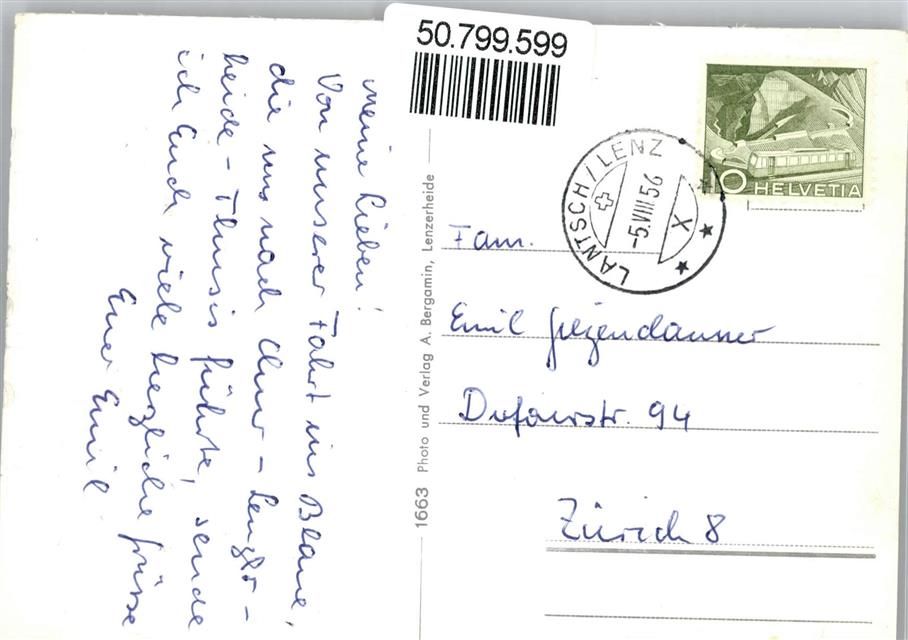 50.799.599
Meine Lieben!
Von unserer Fahrt ins Blaue,
die uns nach Chur - Lenzer-
heide - Thusis führte, sende
ich Euch viele herzliche Grüsse
Euer Emil
1663 Photo und Verlag A. Bergamin, Lenzerheide
LANTSCH/LENZ
-5.VIII.56
X
10 HELVETIA
Fam.
Emil Gezendanner
Dufourstr. 94
Zürich 8